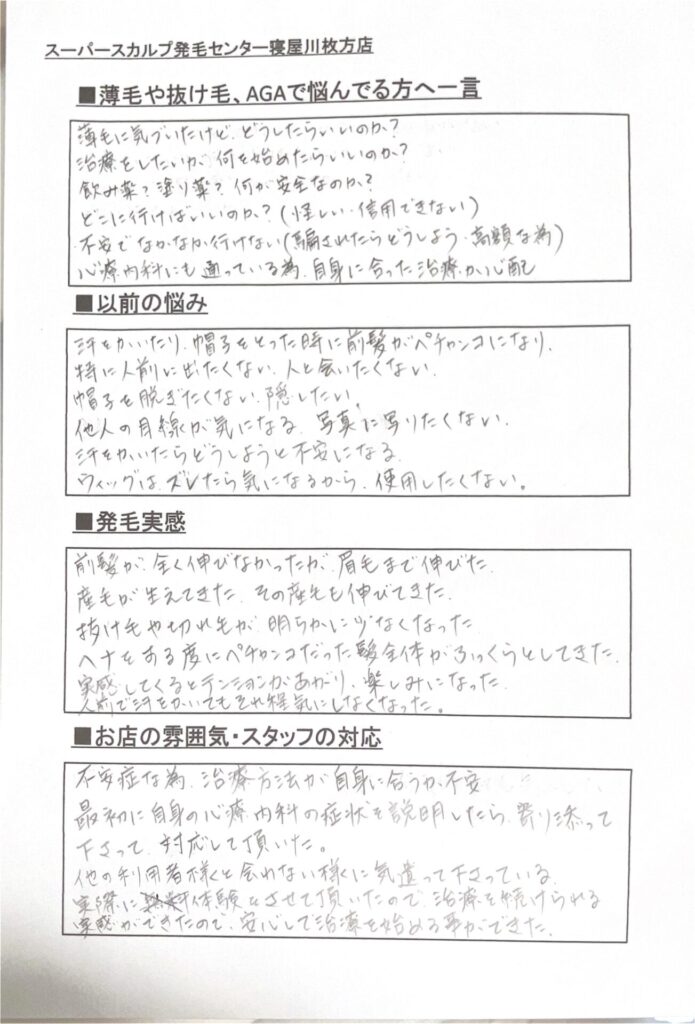 スーパースカルプ発毛センター寝屋川枚方店
■薄毛や抜け毛、AGAで悩んでる方へ一言
薄毛に気づいたけど、どうしたらいいのか?
治療をしたいが、何を始めたらいいのか?
飲み薬?塗り薬?何が安全なのか?
どこに行けばいいのか?(怪しい・信用できない)
不安でなかなか行けない(騙されたらどうしよう・高額な為)
心療内科にも通っている為、自身に合った治療か心配
■以前の悩み
汗をかいたり、帽子をとった時に前髪がペチャンコになり、
特に人前に出たくない、人と会いたくない、
帽子を脱ぎたくない、隠したい。
他人の目線が気になる、写真に写りたくない、
汗をかいたらどうしようと不安になる、
ウィッグは、ズレたら気になるから、使用したくない。
■発毛実感
前髪が、全く伸びなかったが、眉毛まで伸びた、
産毛が生えてきた、その産毛も伸びてきた、
抜け毛や切れ毛が明らかに少なくなった
ヘナをする度にペチャンコだった髪全体がふっくらとしてきた、
実感してくるとテンションがあがり、楽しみになった、
人前で汗をかいてもそれ程気にしなくなった。
■お店の雰囲気・スタッフの対応
不安症な為、治療方法が自身に合うか不安
最初に自身の心療内科の症状を説明したら、寄り添って
下さって、対応して頂いた。
他の利用者様と会わない様に気遣って下さっている、
実際に体験をさせて頂いたので、治療を続けられる
実感ができたので、安心して治療を始める事ができた。